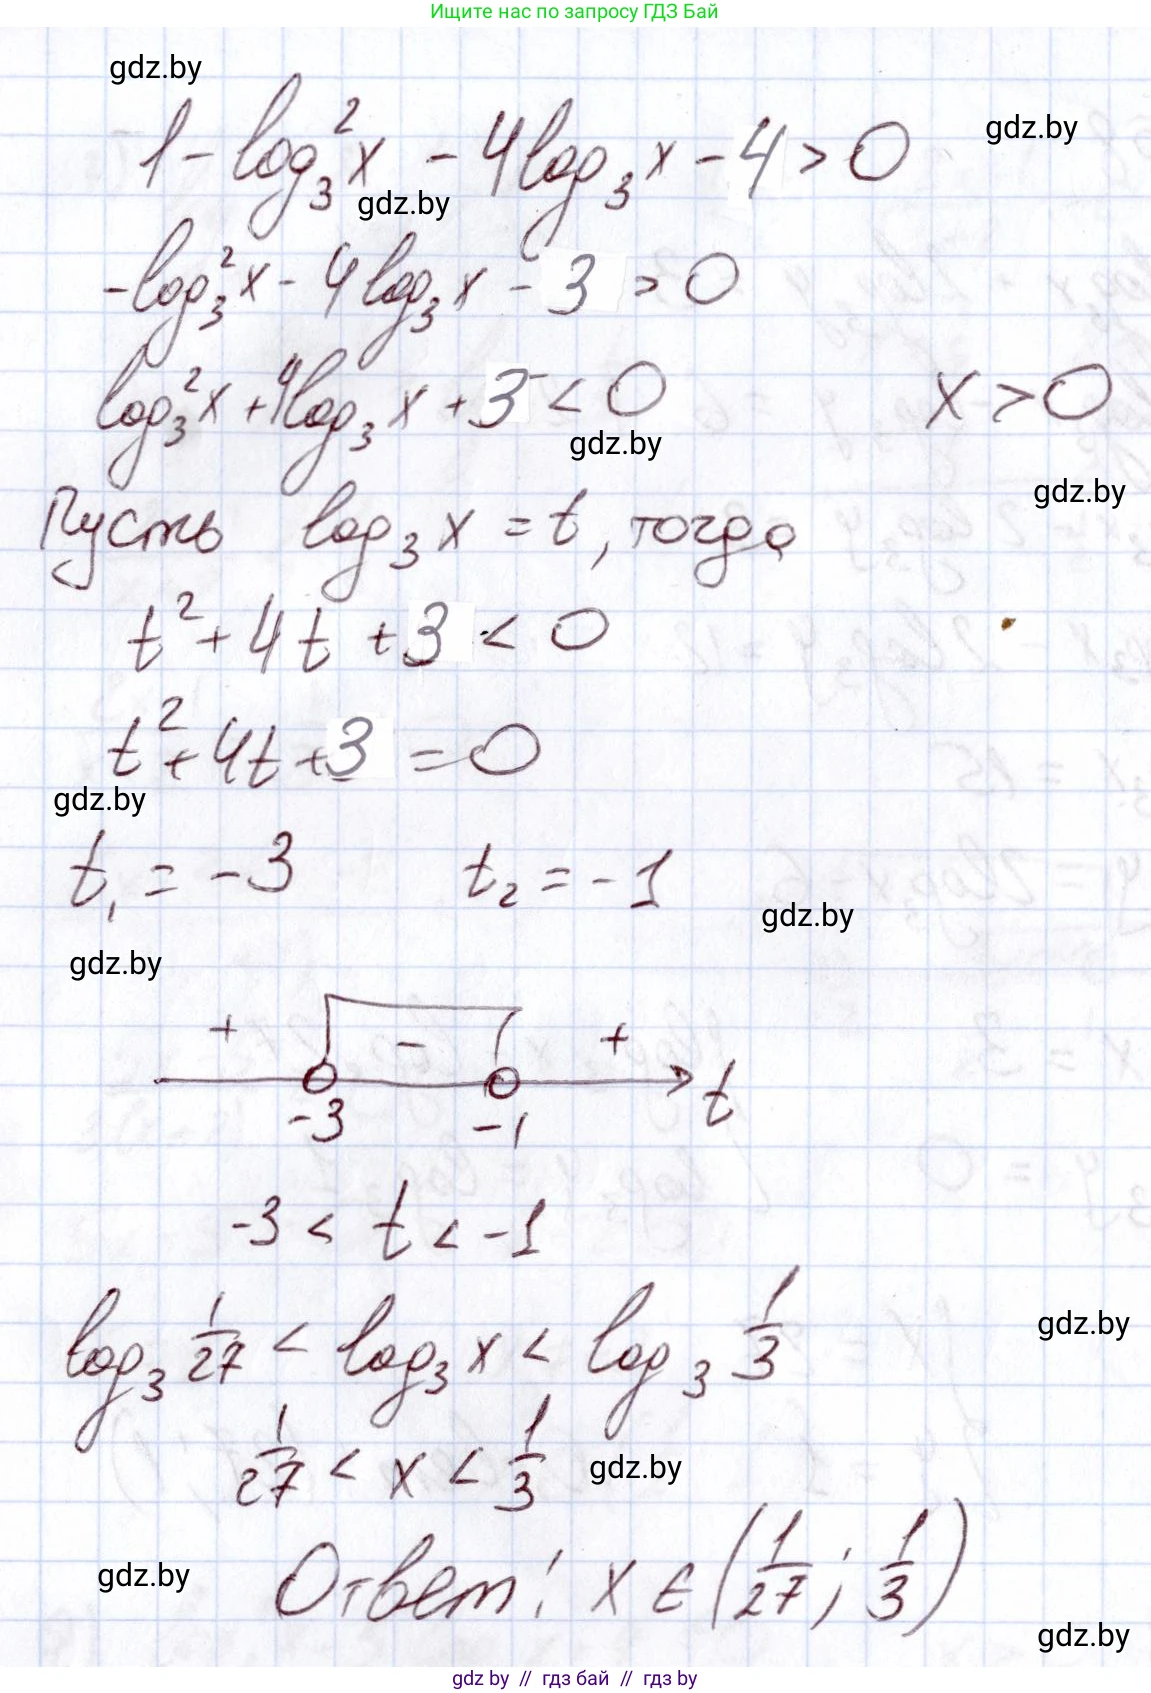 Ищите нас по запросу ГДЗ Бай
gdz.by
1 - log₃²x - 4log₃x - 4 > 0
gdz.by
gdz.by
-log₃²x - 4log₃x - 3 > 0
log₃²x + 4log₃x + 3 < 0 x > 0
gdz.by
gdz.by
Пусть log₃x = t, тогда
t² + 4t + 3 < 0
t² + 4t + 3 = 0
gdz.by
t₁ = -3 t₂ = -1
gdz.by
gdz.by
+ - +
-3 -1 t
-3 < t < -1
log₃ 1/27 < log₃x < log₃ 1/3
gdz.by
1/27 < x < 1/3
gdz.by
gdz.by
Ответ: x ∈ (1/27; 1/3)
gdz.by
gdz by // гдз бай // гдз by